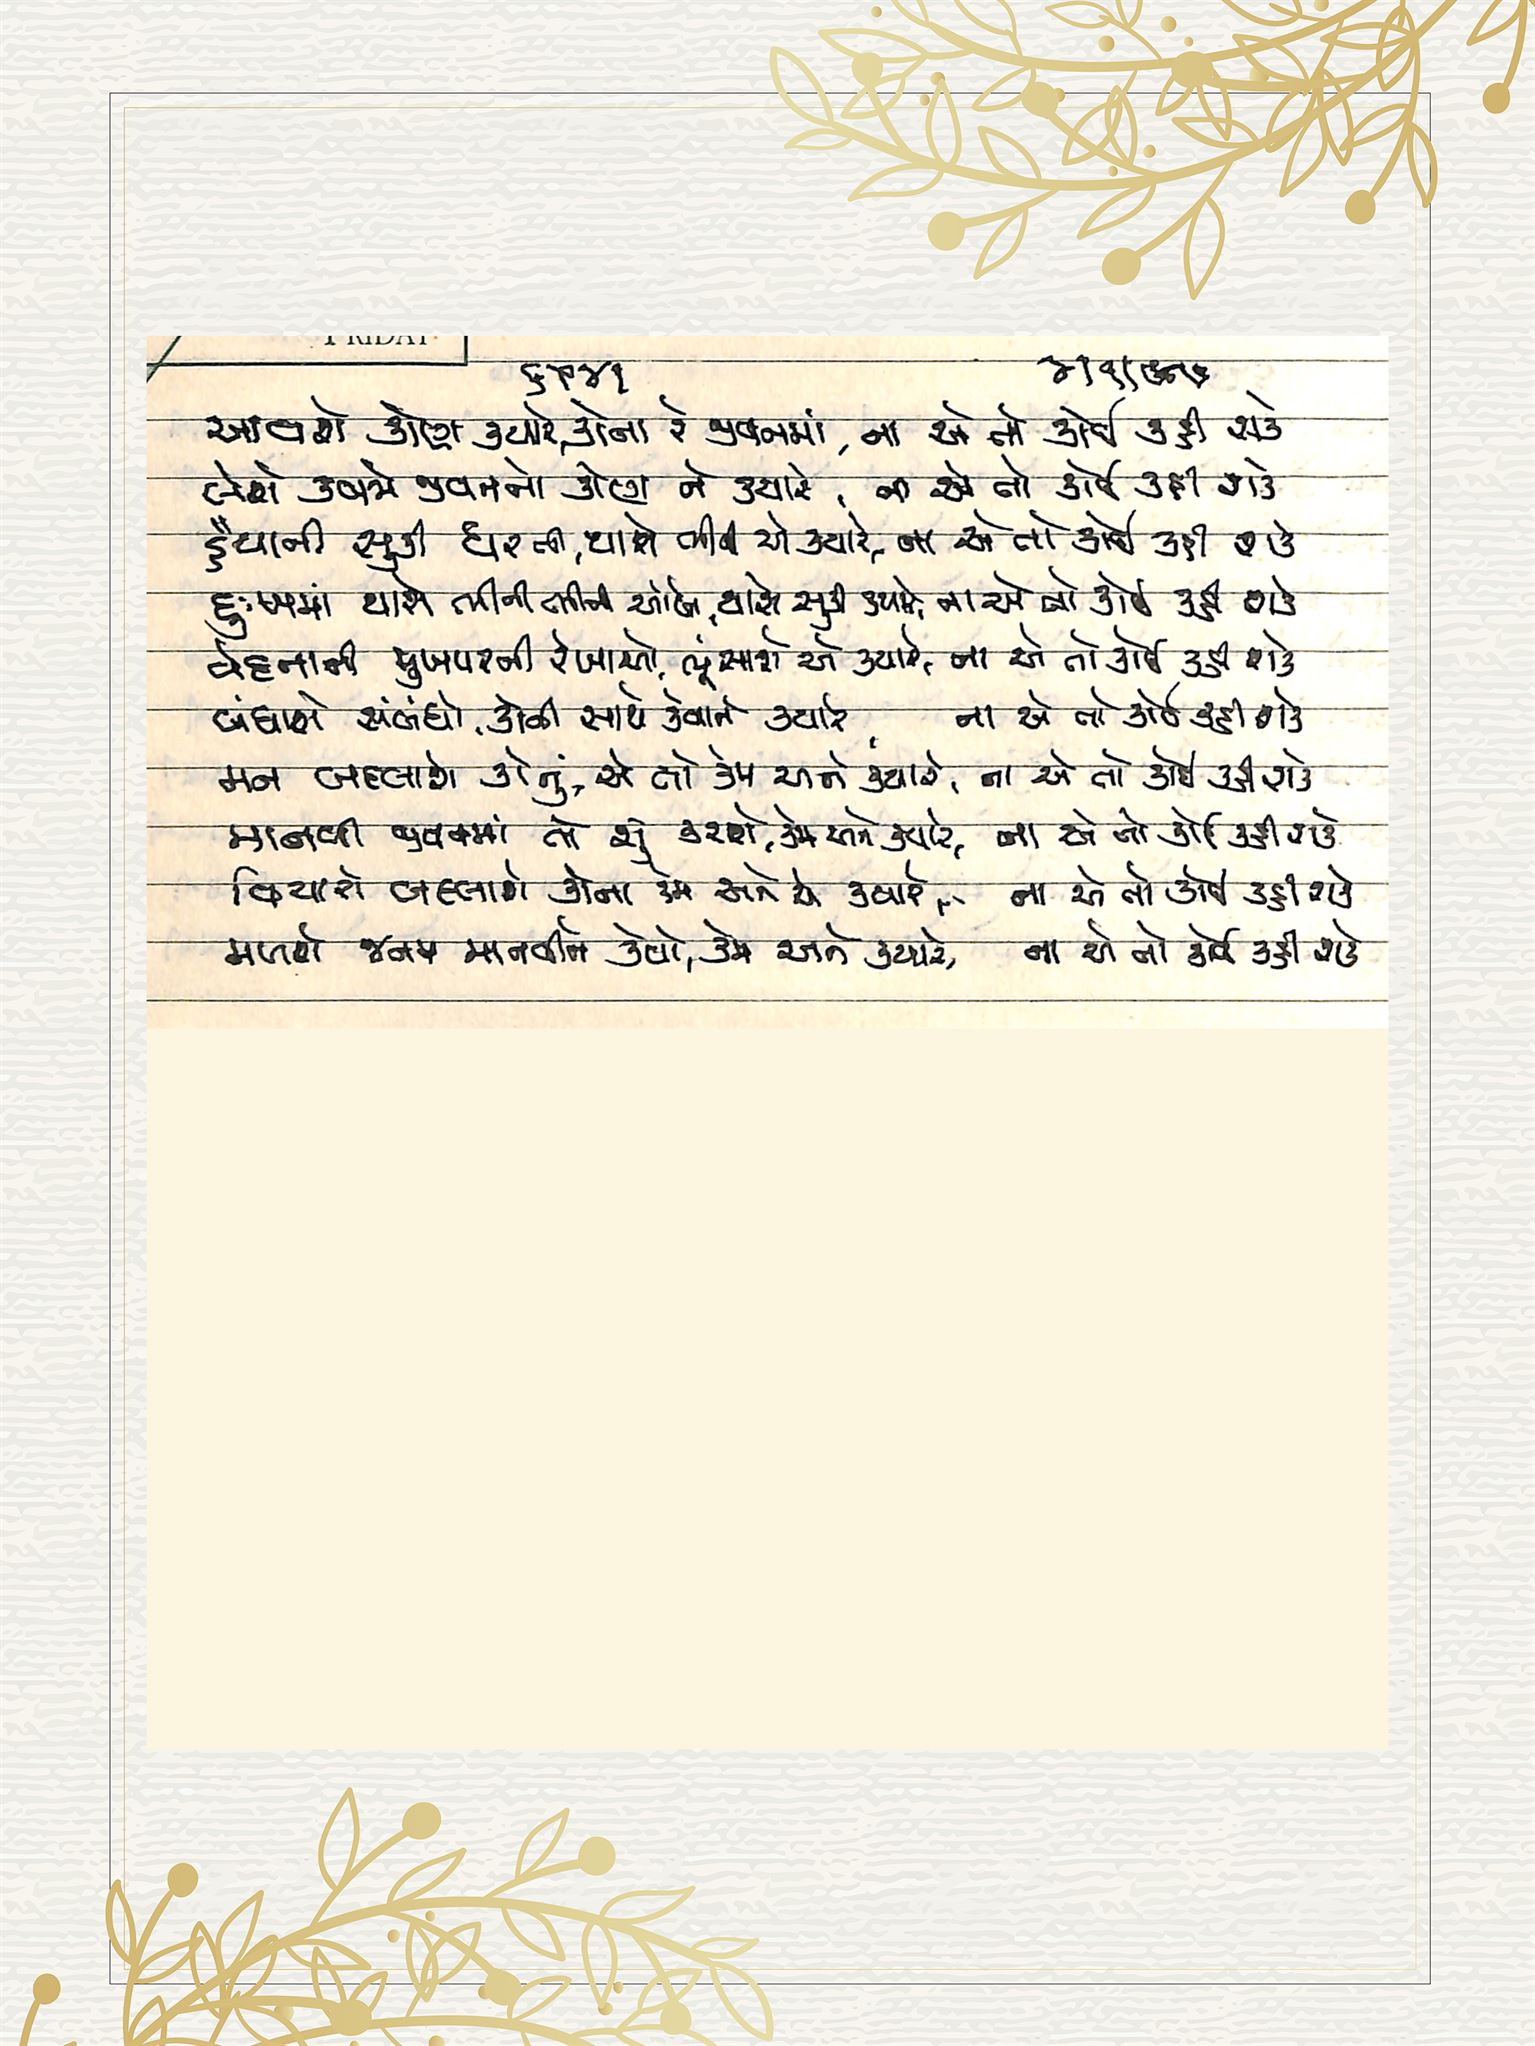 FRIDAY
૬૫૪૧
આવશે કોણ ક્યારે, કોના રે જીવનમાં, ના એ તો કોઈ કહી શકે
લેશે કબજો જીવનનો કોણ ને ક્યારે, ના એ તો કોઈ કહી શકે
હૈયાની સૂકી ધરતી, થાશે ભીની એ ક્યારે, ના એ તો કોઈ કહી શકે
દુઃખમાં થાશે ભીની ભીની આંખો, થાશે સૂકી ક્યારે, ના એ તો કોઈ કહી શકે
વેદનાની મુખપરની રેખાઓ, ભૂંસાશે એ ક્યારે, ના એ તો કોઈ કહી શકે
બંધાશે સંબંધો, કોની સાથે કેવાને ક્યારે, ના એ તો કોઈ કહી શકે
મન બદલાશે કોનું, એ તો કેમ અને ક્યારે, ના એ તો કોઈ કહી શકે
માનવી જીવનમાં તો શું કરશે, કેમ અને ક્યારે, ના એ તો કોઈ કહી શકે
વિચારો બદલાશે કોના કેમ અને ક્યારે, ના એ તો કોઈ કહી શકે
મળશે જનમ માનવીને કેવો, કેમ અને ક્યારે, ના એ તો કોઈ કહી શકે